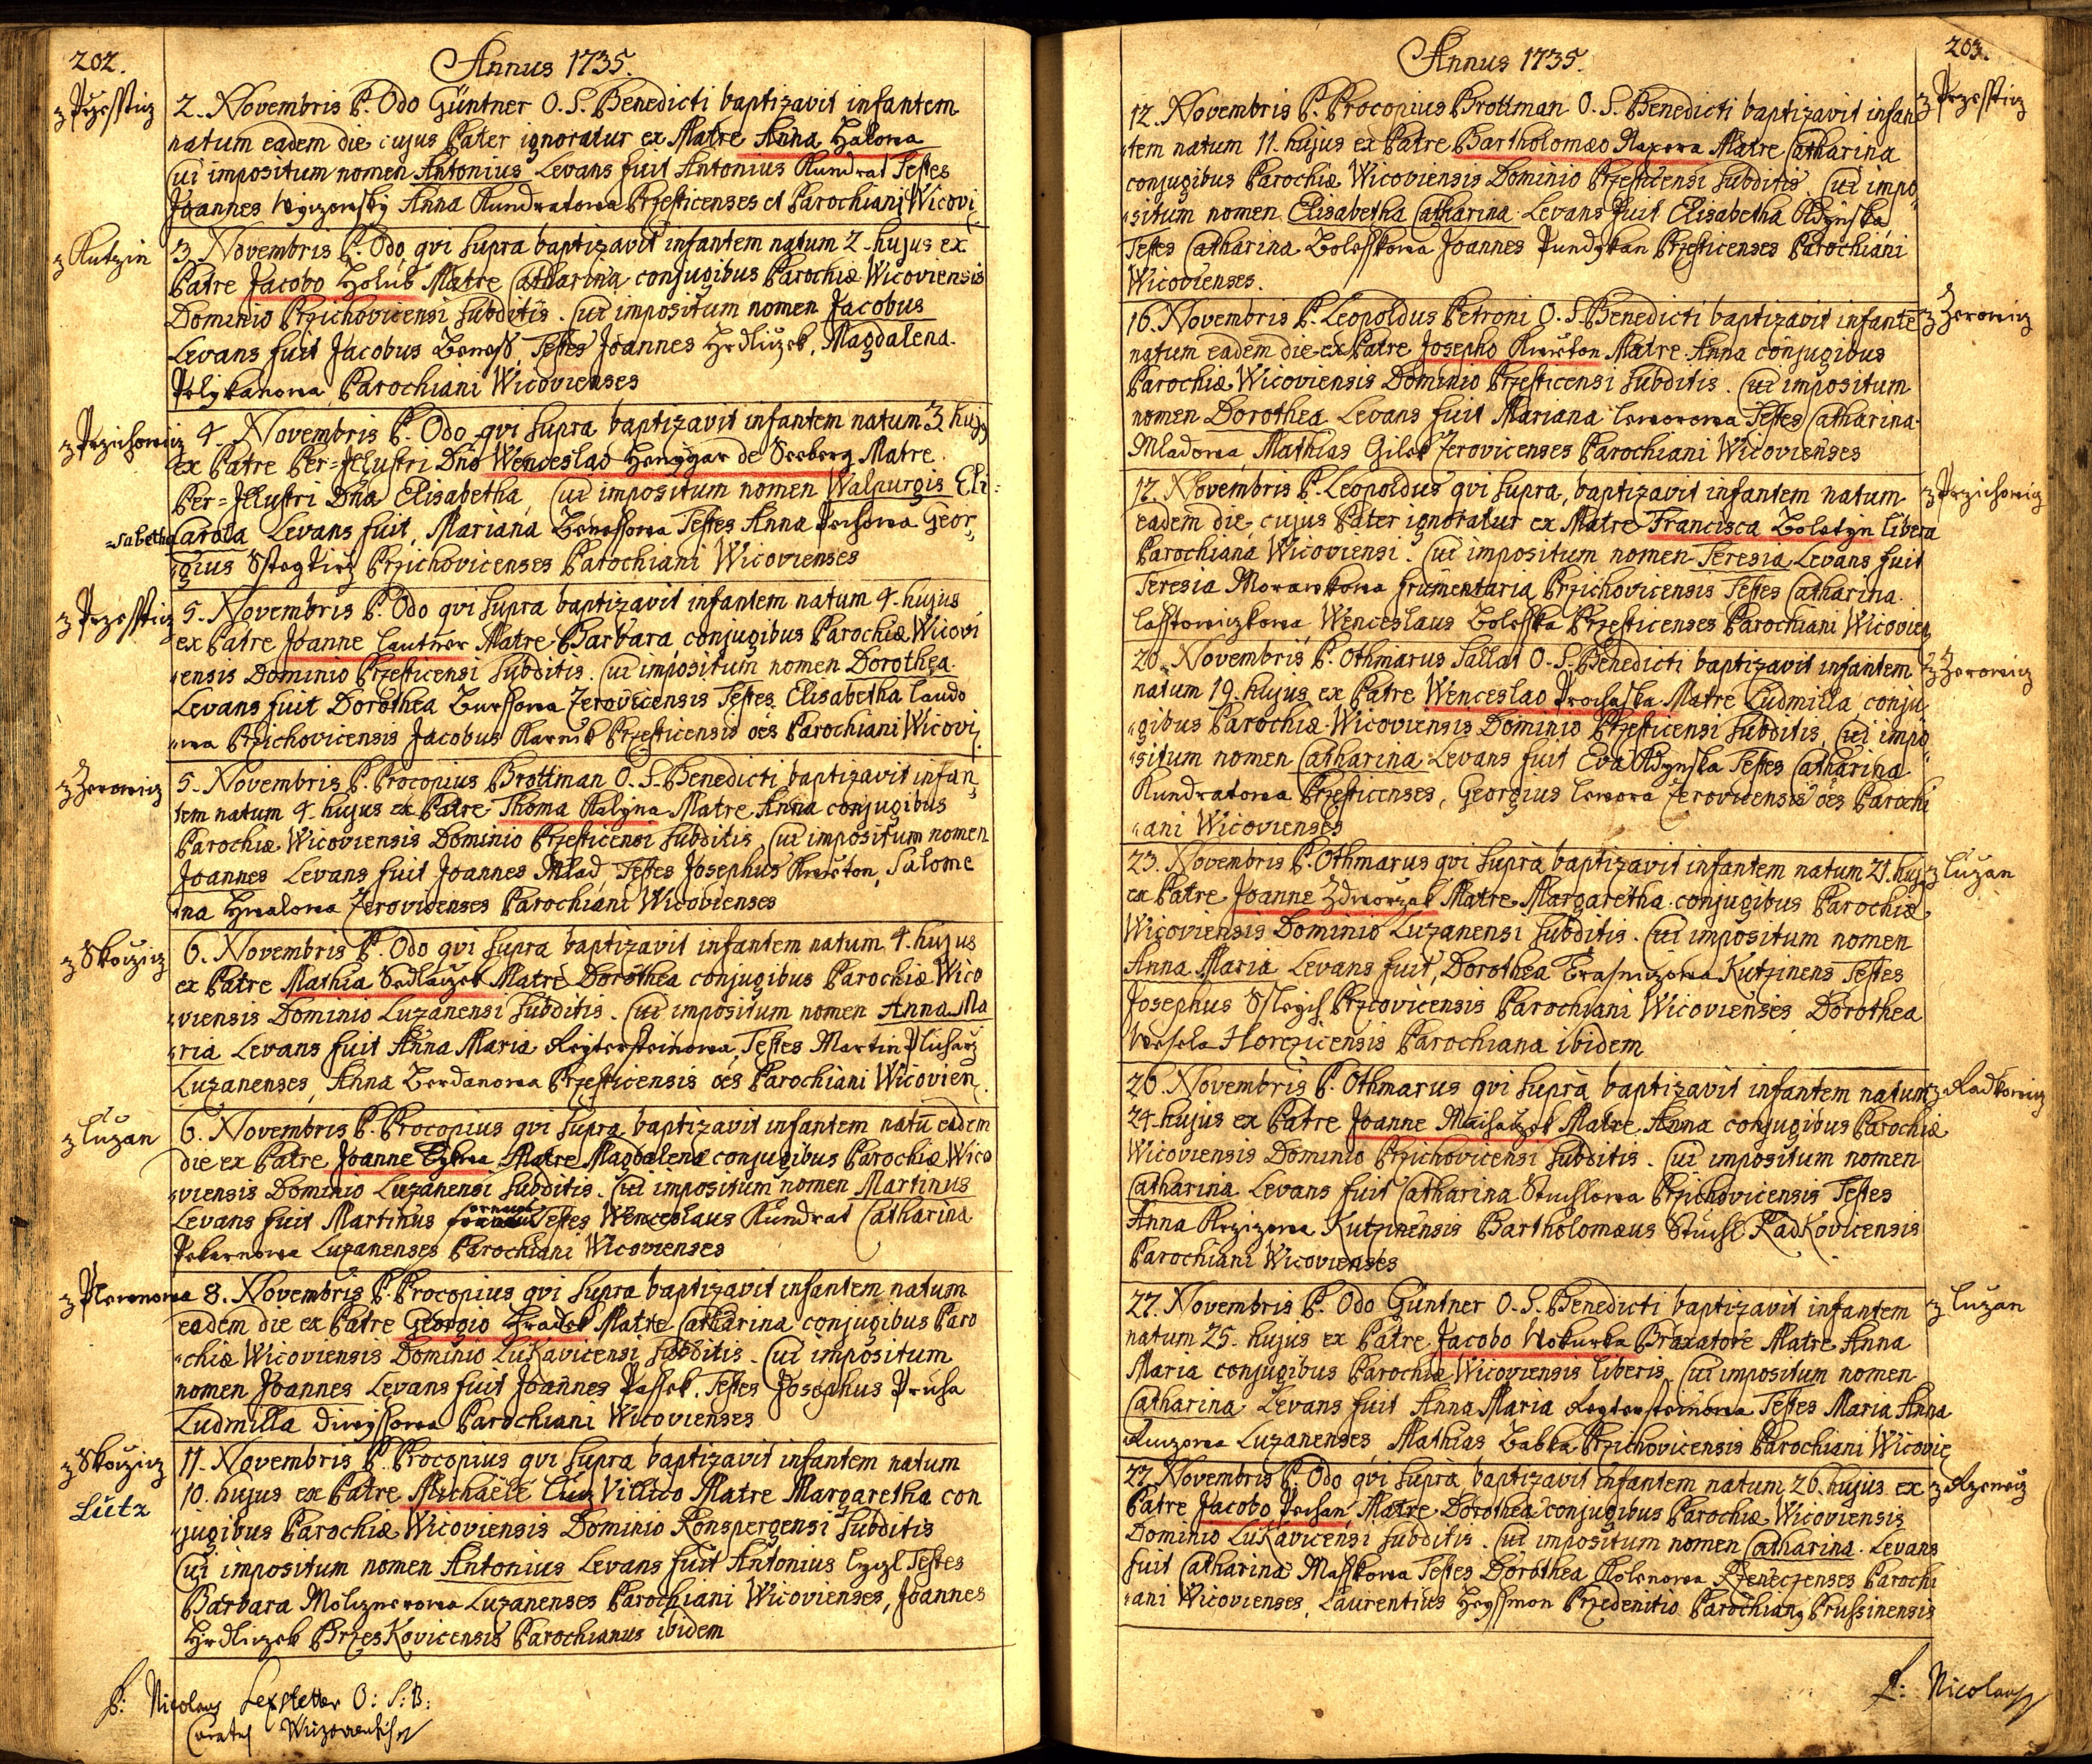 202.
Annus 1735.
z Przesstiz
2. Novembris P. Odo Güntner O. S. Benedicti baptizavit infantem
natum eadem die cujus Pater ignoratur ex Matre Anna Halowa
Cui impositum nomen Antonius Levans fuit Antonius Kundrat Testes
Joannes Anna Kundratowa Przesticenses et Parochiani Wicovi
z Kutzin
3. Novembris P. Odo qvi supra baptizavit infantem natum 2. hujus ex
Patre Jacobo Holub Matre Catharina conjugibus Parochiæ Wicoviensis
Dominio Przichovicensi subditis. Cui impositum nomen Jacobus
Levans fuit Jacobus Beness, Testes Joannes Hrdliczek, Magdalena
Pelzkanowa Parochiani Wicovienses
z Przichowicz
4. Novembris P. Odo qvi supra baptizavit infantem natum 3 hujg
ex Patre Per=Jllustri Dno Wenceslao Henygar de Seeberg Matre
Per=Jllustri Dna Elisabetha, Cui impositum nomen Walpurgis Eli=
=sabetha Carola Levans fuit, Mariana Benessowa Testes Anna Pechowa Geor,,
,,gius Przichovicenses Parochiani Wicovienses
z Przesstiz
5. Novembris P. Odo qvi supra baptizavit infantem natum 4. hujus
ex Patre Joanne Lautner Matre Barbara conjugibus Parochiæ Wicovi
,,ensis Dominio Przesticensi subditis. Cui impositum nomen Dorothea
Levans fuit Dorothea Burssowa Zerovicensis Testes Elisabetha Laudo
,,wa Przichovicensis Jacobus Przesticensis oes Parochiani Wicovi.
z Zerowicz
5. Novembris P. Procopius Brottman O. S. Benedicti baptizavit infan,,
tem natum 4. hujus ex Patre Thoma Kalyna Matre Anna conjugibus
Parochiæ Wicoviensis Dominio Przesticensi subditis Cui impositum nomen
Joannes Levans fuit Joannes Mlad, Testes Josephus Kwieton, Salome
na Hwalowa Zerovicenses Parochiani Wicovienses
z Skoczicz
6. Novembris P. Odo qvi supra baptizavit infantem natum 4. hujus
ex Patre Mathia Sedlaczek Matre Dorothea conjugibus Parochiæ Wico
,,viensis Dominio Luzanensi subditis. Cui impositum nomen Anna Ma
,,ria Levans fuit Anna Maria Reytersteinowa, Testes Martin Pluharz
Luzanenses, Anna Berdanowa Przesticensis oes Parochiani Wicovien.
z Luzan
6. Novembris P. Procopius qvi supra baptizavit infantem natu eadem
die ex Patre Joanne Matre Magdalena conjugibus Parochiæ Wico
,,viensis Dominio Luzanensi subditis. Cui impositum nomen Martinus
Levans fuit Martinus Testes Wenceslaus Kundrat Catharina
Pekarnowa Luzanenses Parochiani Wicovienses
z Plewnowa
8. Novembris P. Procopius qvi supra baptizavit infantem natum
eadem die ex Patre Georgio Hradek Matre Catharina conjugibus Paro
,,chiæ Wicoviensis Dominio Lukavicensi subditis. Cui impositum
nomen Joannes Levans fuit Joannes Passek, Testes Josephus Pruha
Ludmilla Diwyssowa Parochiani Wicovienses
z Skoczicz
Lütz
11. Novembris P. Procopius qvi supra baptizavit infantem natum
10. hujus ex Patre Michaele Lucz Villico Matre Margaretha con
,,jugibus Parochiæ Wicoviensis Dominio Ronspergensi subditis
Cui impositum nomen Antonius Levans fuit Antonius Testes
Barbara Molznerowa Luzanenses Parochiani Wicovienses, Joannes
Hrdliczek Brzeskovicensis Parochianus ibidem
P: Nicolaus Lexstetter O: S: B:
Curatus
203.
Annus 1735.
z Przesstiz
12. Novembris P. Procopius Brottman O. S. Benedicti baptizavit infan
,,tem natum 11. hujus ex Patre Bartholomæo Matre Catharina
conjugibus Parochiæ Wicoviensis Dominio Przesticensi subditis. Cui impo,,
,,situm nomen Elisabetha Catharina Levans fuit Elisabetha Rdynska,
Testes Catharina Bolesskowa Joannes Pundzkan Przesticenses Parochiani
Wicovienses.
z Zerowicz
16. Novembris P. Leopoldus Petroni O. S. Benedicti baptizavit infante
natum eadem die ex Patre Josepho Kwieton Matre Anna conjugibus
Parochiæ Wicoviensis Dominio Przesticensi subditis. Cui impositum
nomen Dorothea Levans fuit Mariana Leworowa Testes Catharina
Mladowa, Mathias Gilek Zerovicenses Parochiani Wicovienses
z Przichowicz
17. Novembris P. Leopoldus qvi supra, baptizavit infantem natum
eadem die, cujus Pater ignoratur ex Matre Francisca Boletzn Libera
Parochiana Wicoviensi. Cui impositum nomen Teresia Levans fuit
Teresia Morawkowa frumentaria Przichovicensis Testes Catharina
Lasstowiczkowa, Wenceslaus Bolesska Przesticenses Parochiani Wicovien
z Zerowicz
20. Novembris P. Othmarus Sallat O. S. Benedicti baptizavit infantem
natum 19. hujus ex Patre Wenceslao Prochaska Matre Ludmilla conju
,,gibus Parochiæ Wicoviensis Dominio Przesticensi subditis, Cui impo,,
,,situm nomen Catharina Levans fuit Eva Rdynska Testes Catharina
Kundratowa Przesticenses, Georgius Lewora Zerovicensis oes Parochi
,,ani Wicovienses
z Luzan
23. Novembris P. Othmarus qvi supra baptizavit infantem natum 21. huj,
ex Patre Joanne Zdworzak Matre Margaretha conjugibus Parochiæ
Wicoviensis Dominio Luzanensi subditis. Cui impositum nomen
Anna Maria Levans fuit, Dorothea Kutzinens Testes
Josephus Przcovicensis Parochiani Wicovienses Dorothea
Wesela Horczicensis Parochiana ibidem
z Radkowicz
26. Novembris P. Othmarus qvi supra baptizavit infantem natum
24. hujus ex Patre Joanne Matre Anna conjugibus Parochiæ
Wicoviensis Dominio Przichovicensi subditis. Cui impositum nomen
Catharina Levans fuit Catharina Stuchlowa Przichovicensis Testes
Anna Krzizowa Kutzinensis Bartholomæus Stuchl Radkovicensis
Parochiani Wicovienses
z Luzan
27. Novembris P. Odo Güntner O. S. Benedicti baptizavit infantem
natum 25. hujus ex Patre Jacobo Wokurka Braxatore Matre Anna
Maria conjugibus Parochiæ Wicoviensis liberis. Cui impositum nomen
Catharina Levans fuit Anna Maria Reytersteinowa Testes Maria Anna
Luzanenses, Mathias Babka Przichovicensis Parochiani Wicovie
z Rzenecz
27. Novembris P. Odo qvi supra baptizavit infantem natum 26. hujus ex
Patre Jacobo Matre Dorothea conjugibus Parochiæ Wicoviensis
Dominio Lukavicensi subditis. Cui impositum nomen Catharina. Levans
fuit Catharina Masskowa Testes Dorothea Kolenowa Rzeneczenses Parochi
,,ani Wicovienses, Laurentius Heyssmon Przedenitio Parochiang Prussinensis
P: Nicolaus